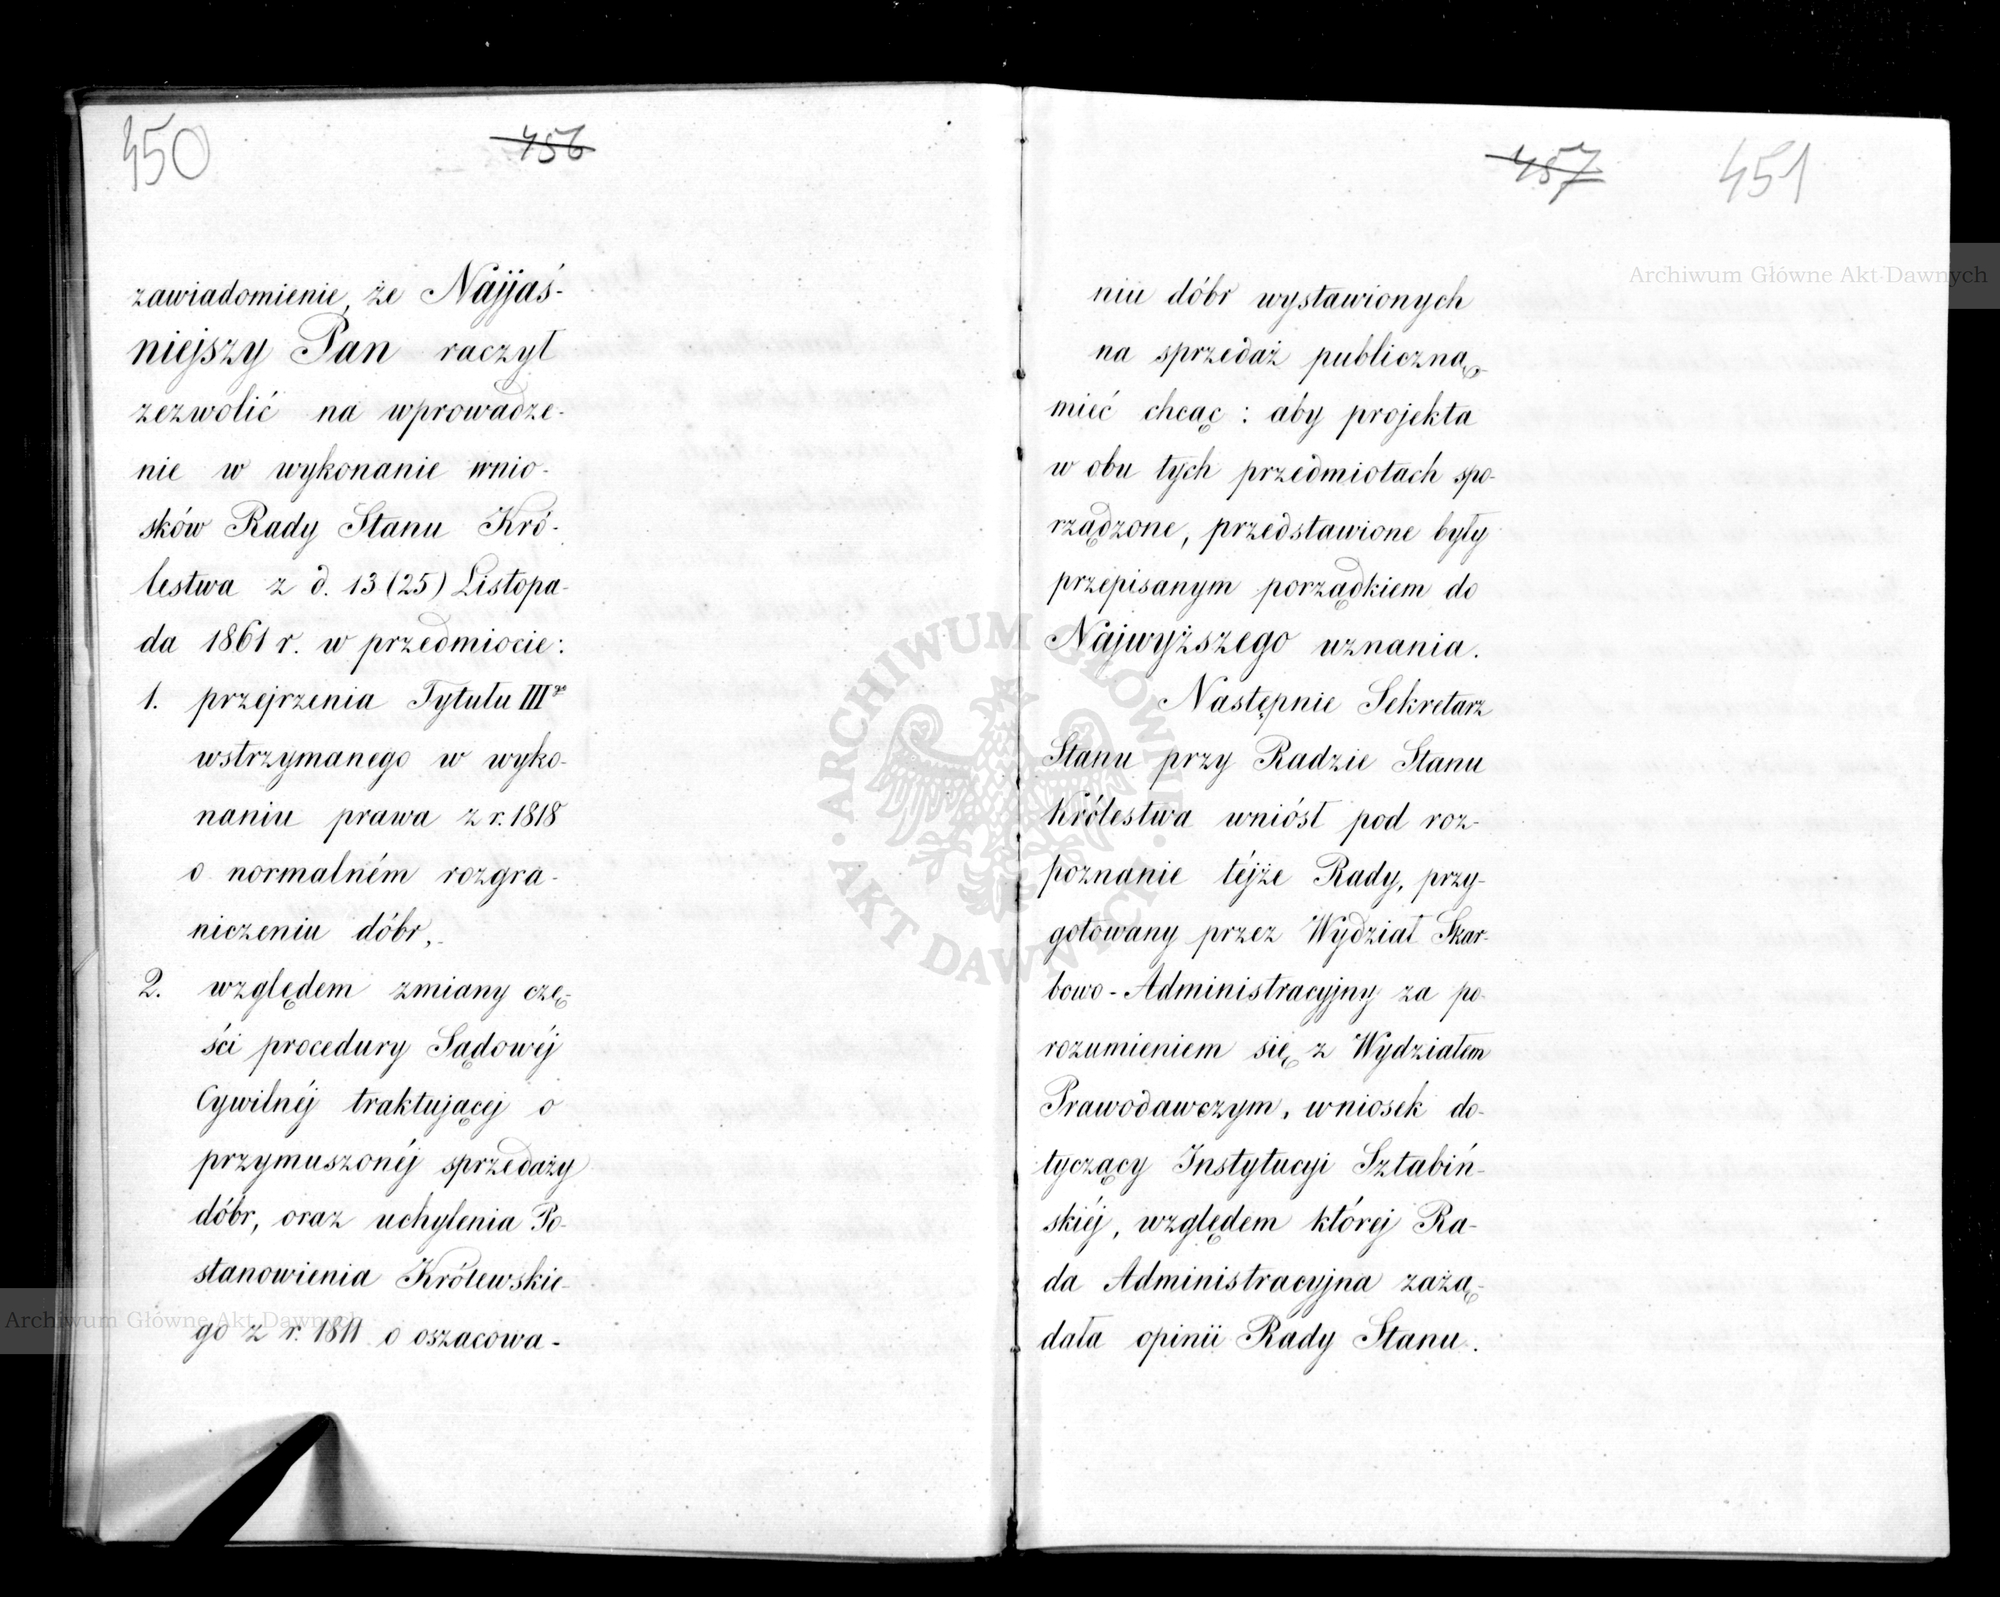 450
456
zawiadomienie, że Najjaś-
niejszy Pan raczył
zezwolić na wprowadze-
nie w wykonanie wnio-
sków Rady Stanu Kró-
lestwa z d. 13 (25) Listopa-
da 1861 r. w przedmiocie:
1. przejrzenia Tytułu IIIgo
wstrzymanego w wyko-
naniu prawa z r. 1818
o normalném rozgra-
niczeniu dóbr,
2. względem zmiany czę-
ści procedury Sądowéj
Cywilnéj traktującej o
przymuszonéj sprzedaży
dóbr, oraz uchylenia Po-
stanowienia Królewskie-
go z r. 1811 o oszacowa-
457
451
niu dóbr wystawionych
na sprzedaż publiczną
mieć chcąc: aby projekta
w obu tych przedmiotach spo-
rządzone, przedstawione były
przepisanym porządkiem do
Najwyższego uznania.
Następnie Sekretarz
Stanu przy Radzie Stanu
Królestwa wniósł pod roz-
poznanie téjże Rady, przy-
gotowany przez Wydział Skar-
bowo-Administracyjny za po-
rozumieniem się z Wydziałem
Prawodawczym, wniosek do-
tyczący Instytucyi Sztabiń-
skiéj, względem której Ra-
da Administracyjna zażą-
dała opinii Rady Stanu.
Archiwum Główne Akt Dawnych
Archiwum Główne Akt Dawnych
ARCHIWUM GŁÓWNE AKT DAWNYCH